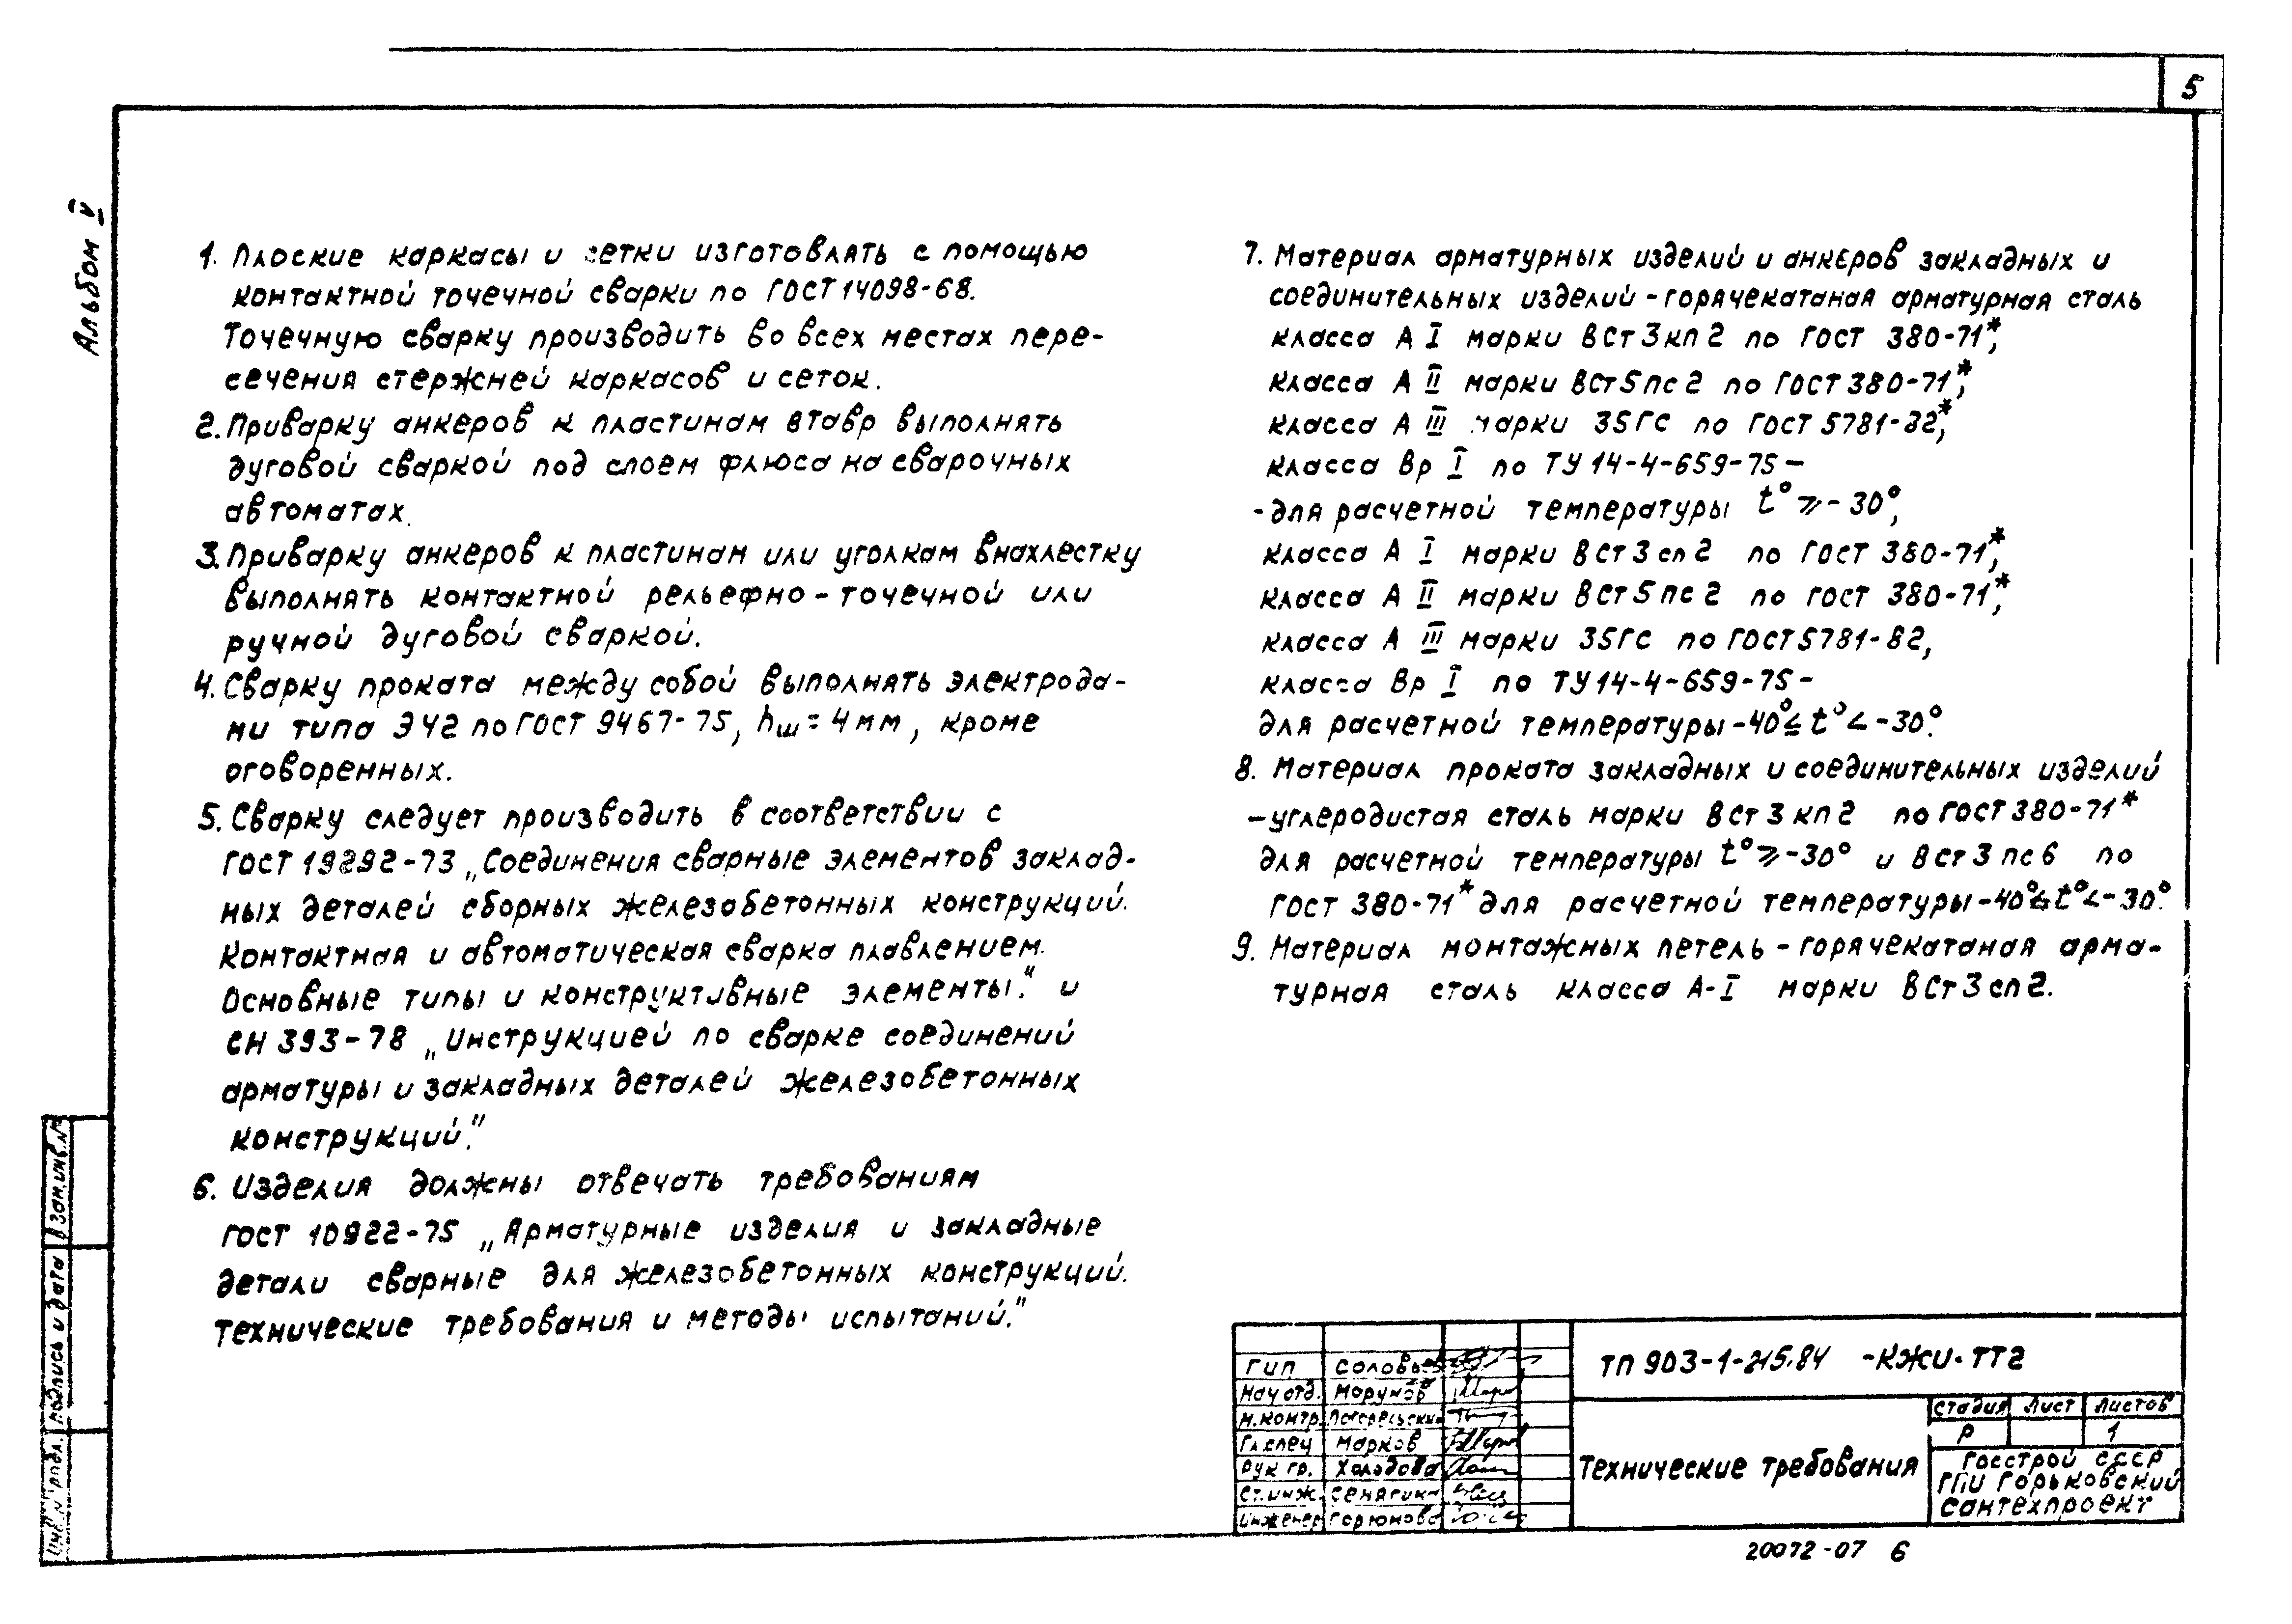 5
Альбом V
1. Плоские каркасы и сетки изготовлять с помощью
контактной точечной сварки по ГОСТ 14098-68.
Точечную сварку производить во всех местах пере-
сечения стержней каркасов и сеток.
2. Приварку анкеров к пластинам втавр выполнять
дуговой сваркой под слоем флюса на сварочных
автоматах.
3. Приварку анкеров к пластинам или уголкам внахлестку
выполнять контактной рельефно-точечной или
ручной дуговой сваркой.
4. Сварку проката между собой выполнять электрода-
ми типа Э42 по ГОСТ 9467-75, hш=4мм, кроме
оговоренных.
5. Сварку следует производить в соответствии с
ГОСТ 19292-73 „Соединения сварные элементов заклад-
ных деталей сборных железобетонных конструкций.
Контактная и автоматическая сварка плавлением.
Основные типы и конструктивные элементы." и
СН 393-78 „Инструкцией по сварке соединений
арматуры и закладных деталей железобетонных
конструкций."
6. Изделия должны отвечать требованиям
ГОСТ 10922-75 „Арматурные изделия и закладные
детали сварные для железобетонных конструкций.
Технические требования и методы испытаний."
7. Материал арматурных изделий и анкеров закладных и
соединительных изделий - горячекатаная арматурная сталь
класса А I марки ВСт3кп2 по ГОСТ 380-71*,
класса А II марки ВСт5пс2 по ГОСТ 380-71*,
класса А III марки 35ГС по ГОСТ 5781-82*,
класса Вр I по ТУ 14-4-659-75 —
- для расчетной температуры t° ⩾ -30°,
класса А I марки ВСт3сп2 по ГОСТ 380-71*,
класса А II марки ВСт5пс2 по ГОСТ 380-71*,
класса А III марки 35ГС по ГОСТ 5781-82,
класса Вр I по ТУ 14-4-659-75 -
для расчетной температуры -40° ≤ t° < -30°.
8. Материал проката закладных и соединительных изделий
- углеродистая сталь марки ВСт3кп2 по ГОСТ 380-71*
для расчетной температуры t° ⩾ -30° и ВСт3пс6 по
ГОСТ 380-71* для расчетной температуры -40° ≤ t° < -30°.
9. Материал монтажных петель - горячекатаная арма-
турная сталь класса А-I марки ВСт3сп2.
Взам.инв.№
Подпись и дата
Инв.№ подл.
ГИП Соловьев
Нач отд. Морунов
Н.контр. Погорельский
Гл.спец Марков
Рук гр. Холодова
Ст.инж. Семягин
Инженер Горюнова
ТП 903-1-215.84 -КЖИ.ТТ2
Технические требования
Стадия Лист Листов
Р 1
Госстрой СССР
ГПИ Горьковский
Сантехпроект
20072-07 6